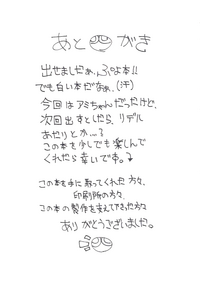 あとがき
出せましたぁ、ぷよ本!!
でも白い本だなぁ。(汗)
今回はアミちゃんだったけど、
次回出すとしたら、リデル
あたりとか…?
この本を少しでも楽しんで
くれたら幸いです。
この本を手に取ってくれた方々、
印刷所の方々、
この本の製作を支えて下さった方々
ありがとうございました。